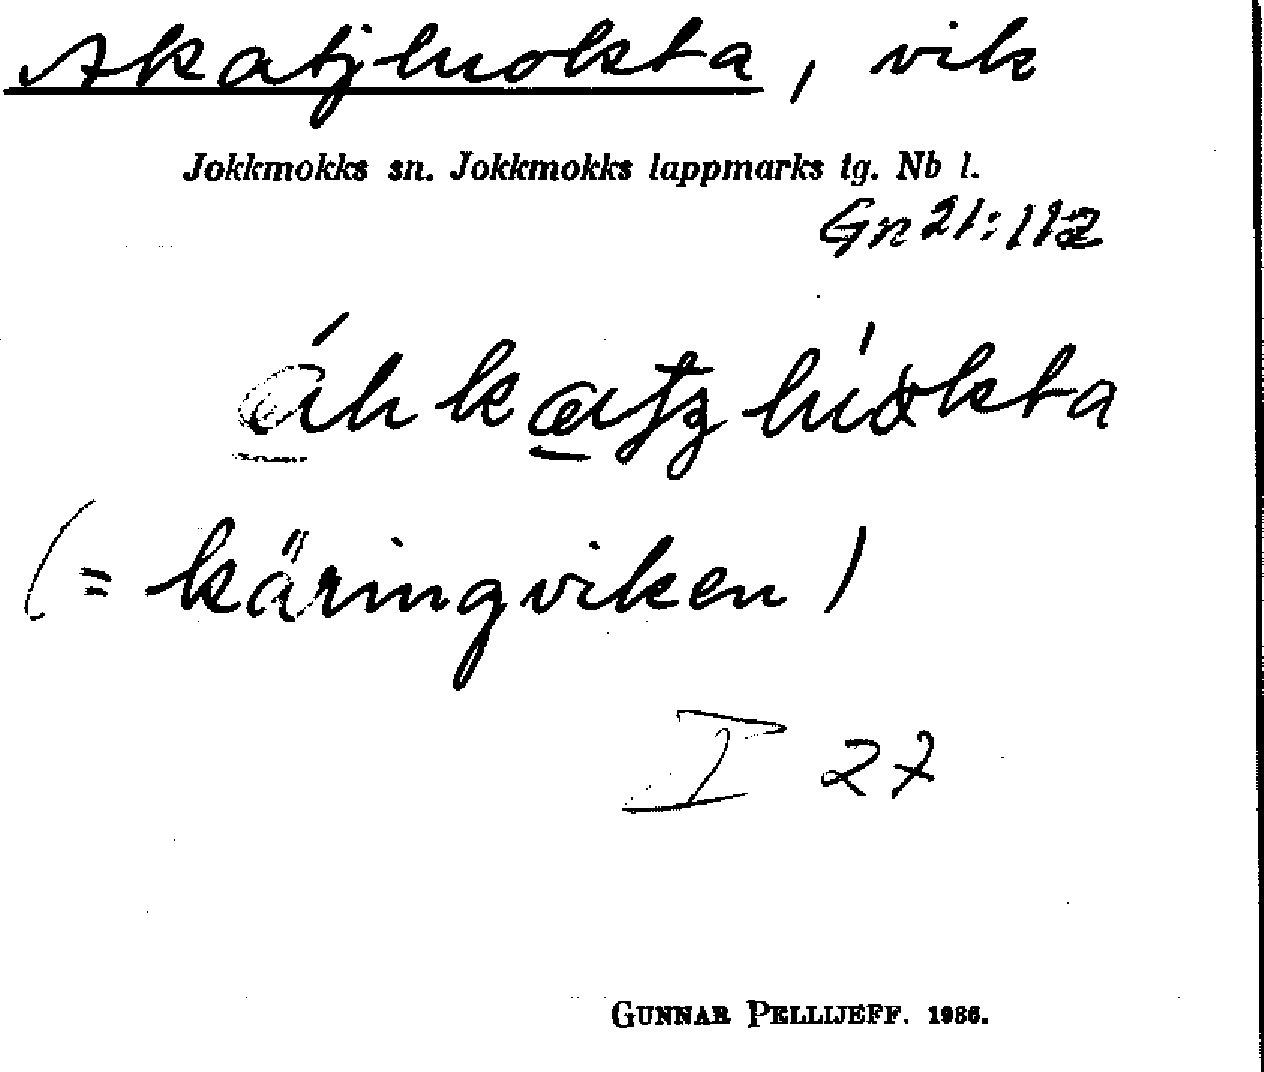 Akatjluokta, vik
Jokkmokks sn. Jokkmokks lappmarks tg. Nb l.
Gn 21:112
áhkatzluokta
(= käringviken)
I 27
GUNNAR PELLIJEFF. 1986.